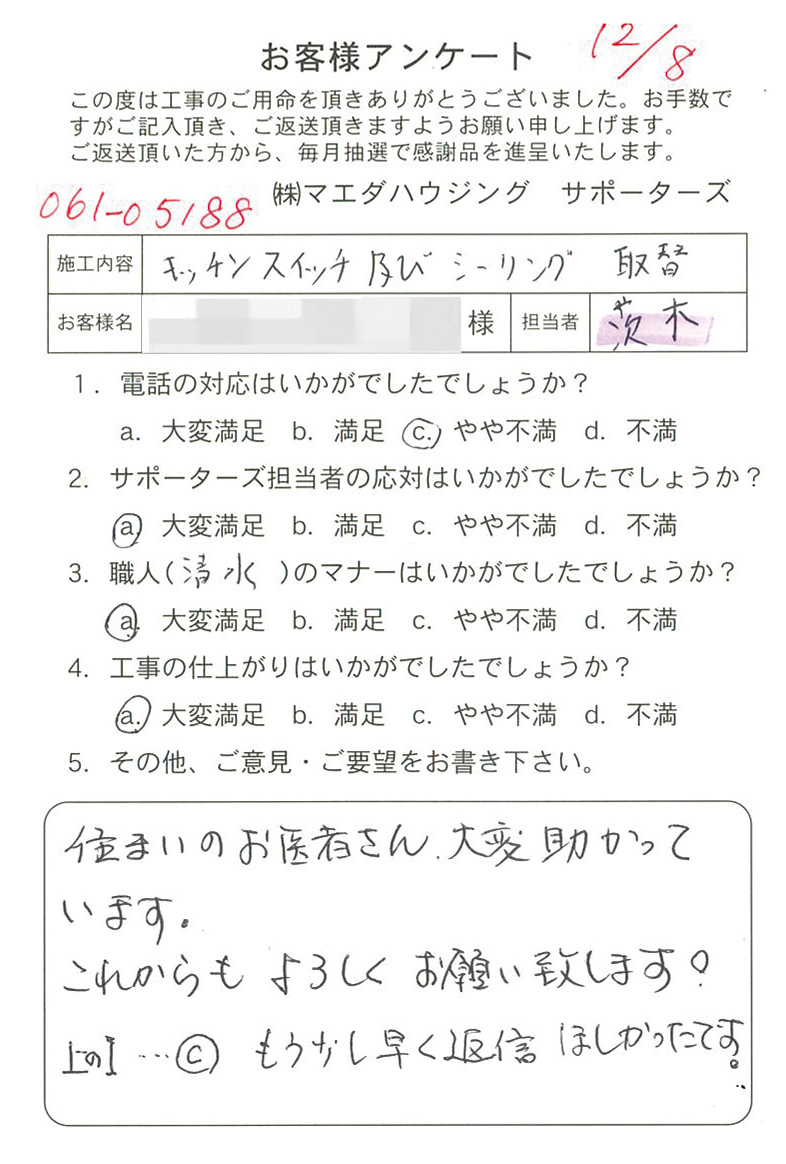 お客様アンケート 12/8
この度は工事のご用命を頂きありがとうございました。お手数で
すがご記入頂き、ご返送頂きますようお願い申し上げます。
ご返送頂いた方から、毎月抽選で感謝品を進呈いたします。
061-05188 ㈱マエダハウジング サポーターズ
施工内容 キッチンスイッチ及びシーリング 取替
お客様名 様 担当者 茨木
1. 電話の対応はいかがでしたでしょうか？
a. 大変満足 b. 満足 c. やや不満 d. 不満
2. サポーターズ担当者の応対はいかがでしたでしょうか？
a 大変満足 b. 満足 c. やや不満 d. 不満
3. 職人(清水 )のマナーはいかがでしたでしょうか？
a. 大変満足 b. 満足 c. やや不満 d. 不満
4. 工事の仕上がりはいかがでしたでしょうか？
a. 大変満足 b. 満足 c. やや不満 d. 不満
5. その他、ご意見・ご要望をお書き下さい。
住まいのお医者さん、大変助かって
います。
これからも よろしく お願い致します。
上の1 … ⓒ もう少し早く返信 ほしかったです。